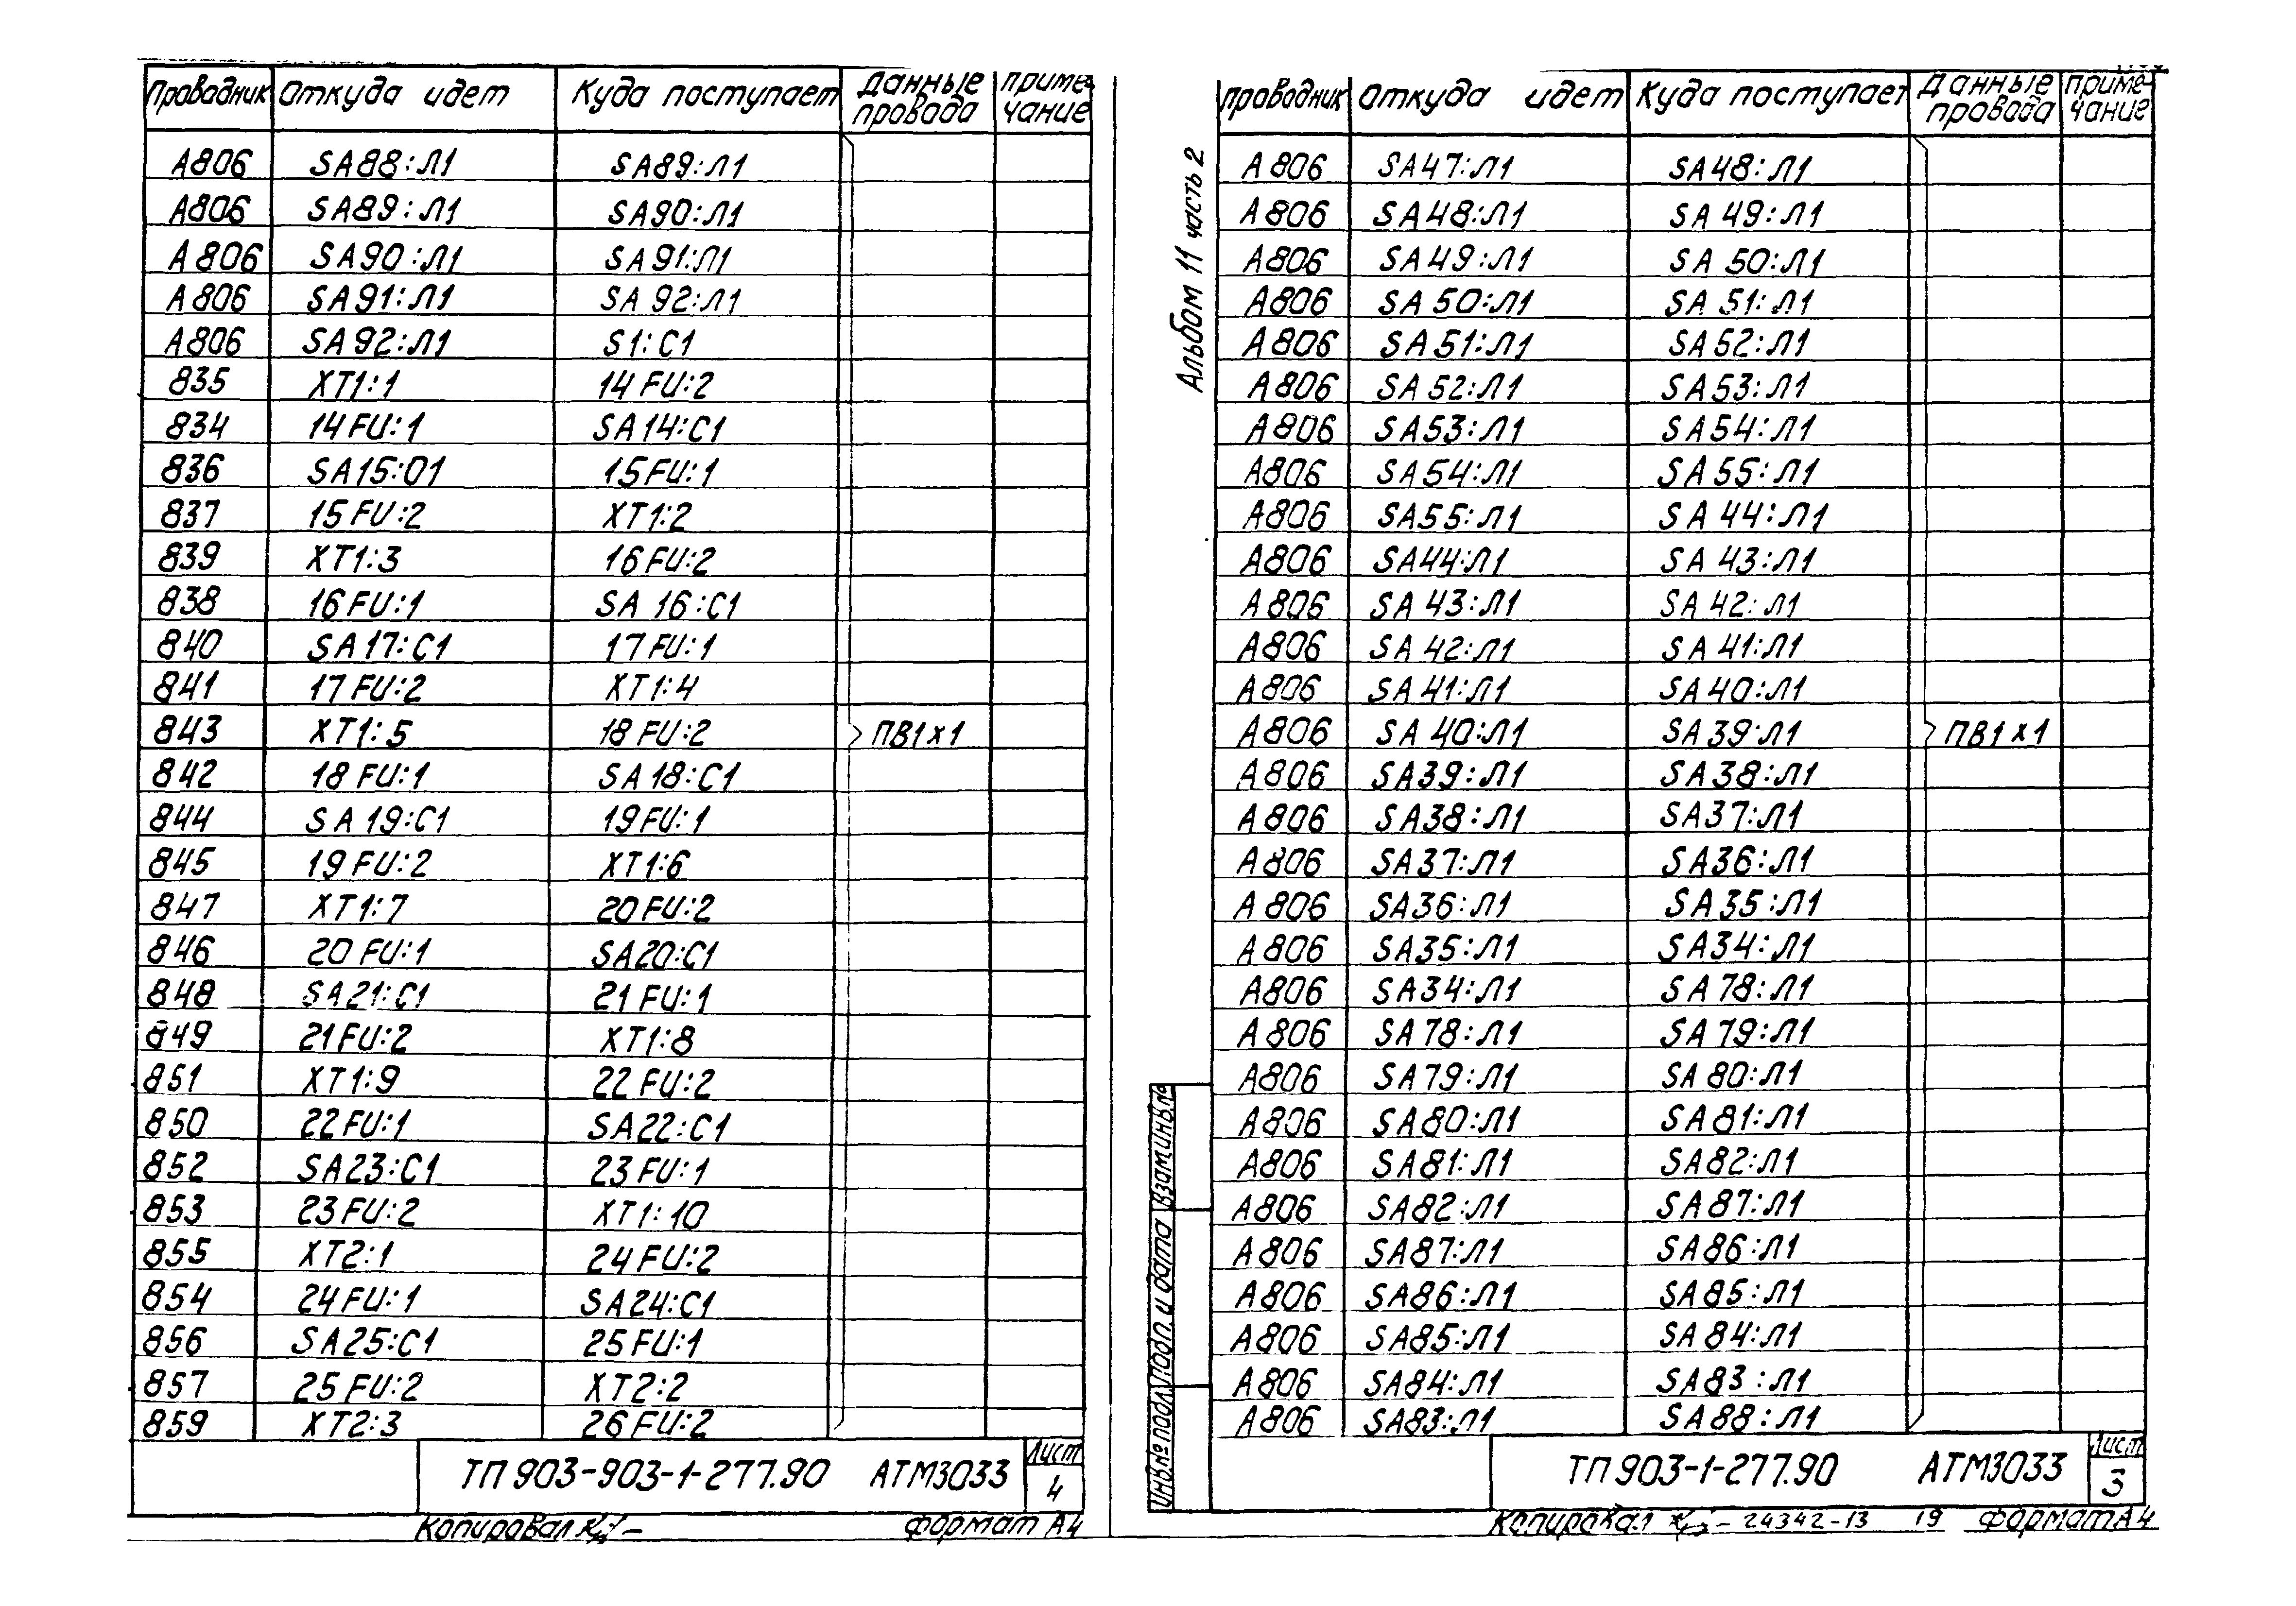 Проводник Откуда идет Куда поступает Данные провода Примечание
А806 SA88:Л1 SA89:Л1
А806 SA89:Л1 SA90:Л1
А806 SA90:Л1 SA91:Л1
А806 SA91:Л1 SA92:Л1
А806 SA92:Л1 S1:С1
835 ХТ1:1 14FU:2
834 14FU:1 SA14:С1
836 SA15:01 15FU:1
837 15FU:2 ХТ1:2
839 ХТ1:3 16FU:2
838 16FU:1 SA16:С1
840 SA17:С1 17FU:1
841 17FU:2 ХТ1:4
843 ХТ1:5 18FU:2 ПВ1х1
842 18FU:1 SA18:С1
844 SA19:С1 19FU:1
845 19FU:2 ХТ1:6
847 ХТ1:7 20FU:2
846 20FU:1 SA20:С1
848 SA21:С1 21FU:1
849 21FU:2 ХТ1:8
851 ХТ1:9 22FU:2
850 22FU:1 SA22:С1
852 SA23:С1 23FU:1
853 23FU:2 ХТ1:10
855 ХТ2:1 24FU:2
854 24FU:1 SA24:С1
856 SA25:С1 25FU:1
857 25FU:2 ХТ2:2
859 ХТ2:3 26FU:2
ТП903-903-1-277.90 АТМ3033 Лист 4
Копировал формат А4
Альбом 11 часть 2
Проводник Откуда идет Куда поступает Данные провода Примечание
А806 SA47:Л1 SA48:Л1
А806 SA48:Л1 SA49:Л1
А806 SA49:Л1 SA50:Л1
А806 SA50:Л1 SA51:Л1
А806 SA51:Л1 SA52:Л1
А806 SA52:Л1 SA53:Л1
А806 SA53:Л1 SA54:Л1
А806 SA54:Л1 SA55:Л1
А806 SA55:Л1 SA44:Л1
А806 SA44:Л1 SA43:Л1
А806 SA43:Л1 SA42:Л1
А806 SA42:Л1 SA41:Л1
А806 SA41:Л1 SA40:Л1
А806 SA40:Л1 SA39:Л1 ПВ1х1
А806 SA39:Л1 SA38:Л1
А806 SA38:Л1 SA37:Л1
А806 SA37:Л1 SA36:Л1
А806 SA36:Л1 SA35:Л1
А806 SA35:Л1 SA34:Л1
А806 SA34:Л1 SA78:Л1
А806 SA78:Л1 SA79:Л1
А806 SA79:Л1 SA80:Л1
А806 SA80:Л1 SA81:Л1
А806 SA81:Л1 SA82:Л1
А806 SA82:Л1 SA87:Л1
А806 SA87:Л1 SA86:Л1
А806 SA86:Л1 SA85:Л1
А806 SA85:Л1 SA84:Л1
А806 SA84:Л1 SA83:Л1
А806 SA83:Л1 SA88:Л1
Инв.№ подл. Подп. и дата Взам.инв.№
ТП903-1-277.90 АТМ3033 Лист 3
Копировал 24342-13 19 формат А4